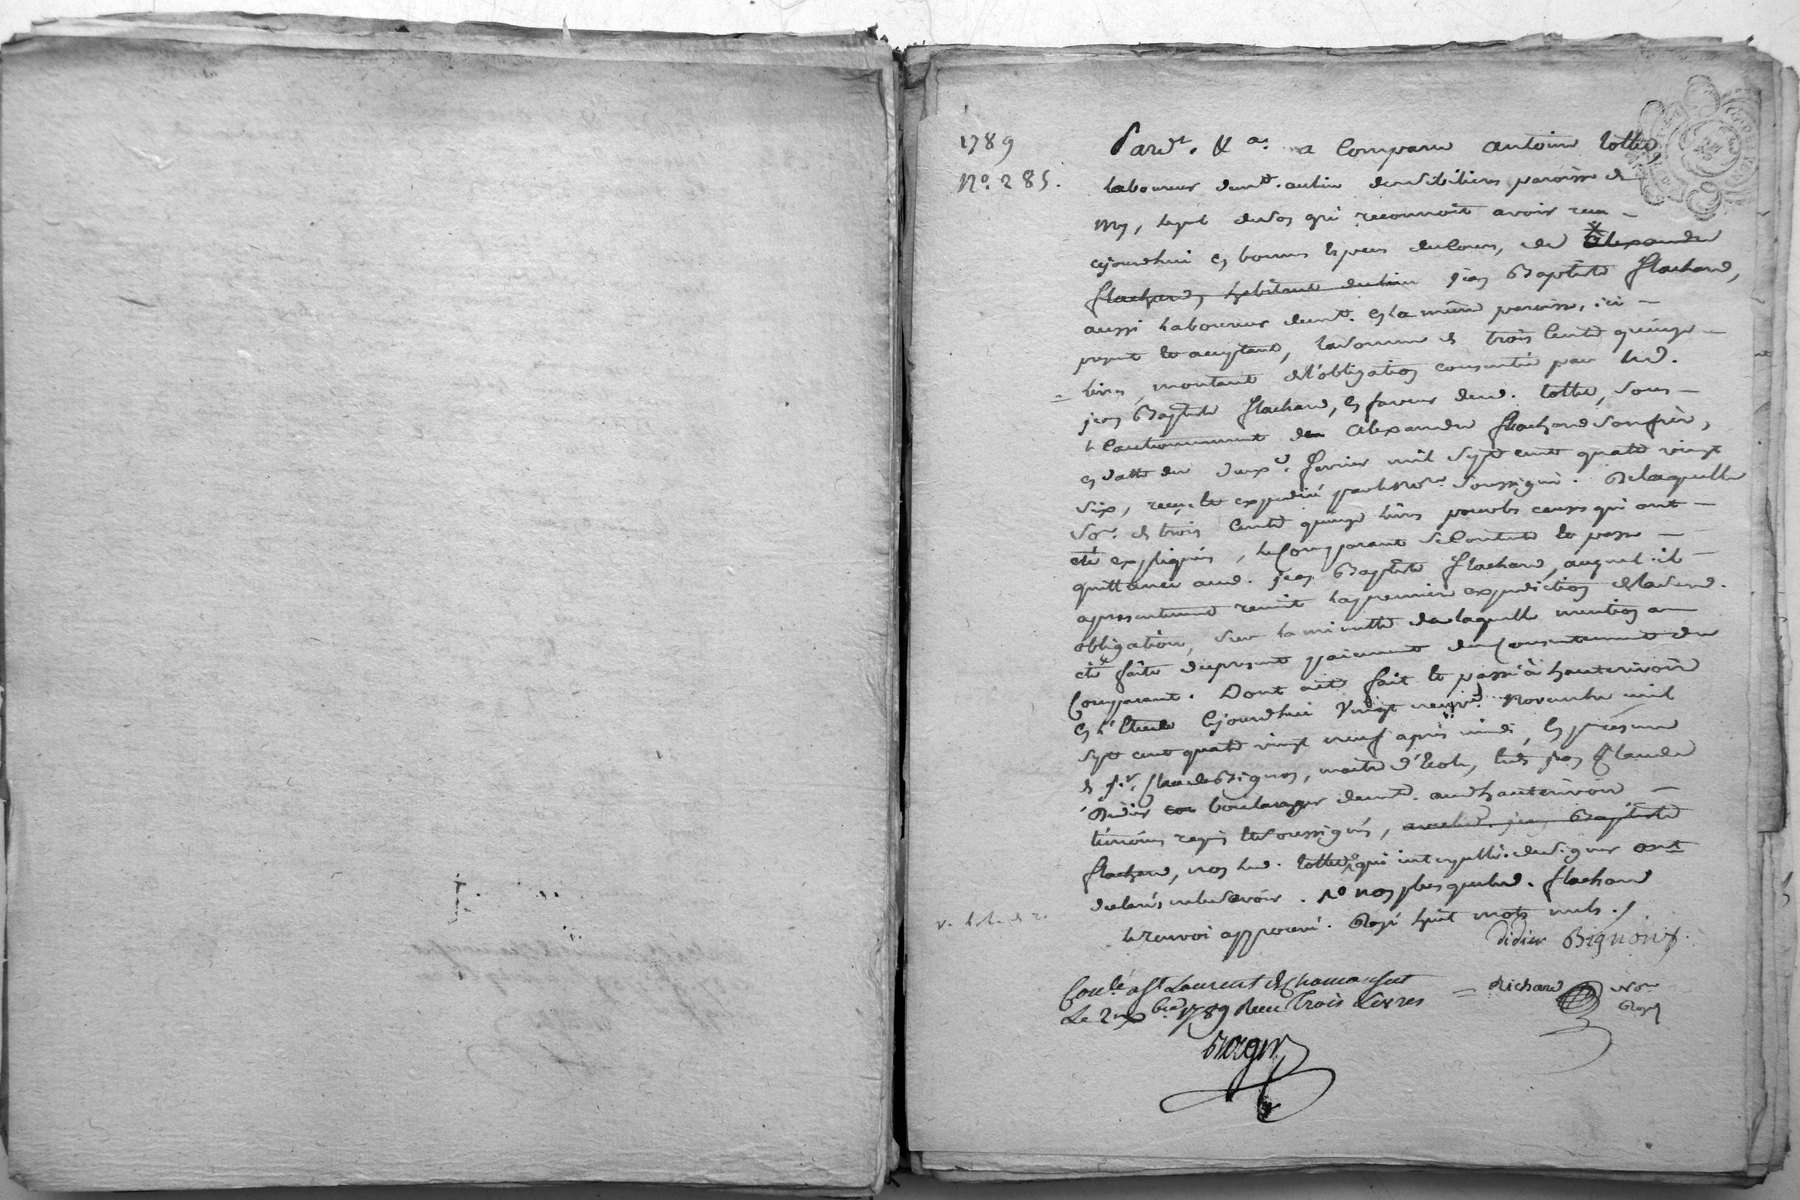 1789
N.° 285.
Pard.t. & a.. a Comparu antoine Lottes
Laboureur demt. au lieu paroisse de
lequel de son gré reconnoit avoir reçu
cejourdhui en bonnes especes de cours, de Alexandre
flachard, habitant du lieu jean Baptiste flachard,
aussi Laboureur demt. en la même paroisse, ici
present et acceptant, la somme de trois Cents quinze
livres, montant de l'obligation consentie par led.
jean Baptiste flachard, en faveur dud. Lottes, sous
le Cautionnement de Alexandre flachard son frere,
en datte du deuxe. fevrier mil sept cent quatre vingt
six, reçue et expediée par le Nore. soussigné. De laquelle
Some. de trois Cents quinze livres pour les causes qui ont
été expliquées, le Comparant se Contente et passe
quittance aud. jean Baptiste flachard, auquel il
a presentement remit la premiere expedition de la susd.
obligation, sur la minutte de laquelle mention a
été faite du present paiement du Consentement du
Comparant. Dont acte fait et passé à hauterivoire
en l'Etude Cejourdhui Vingt neuve. Novembre mil
sept cent quatre vingt neuf après midi, en presence
de sr. Claude Bignon, maitre d'Ecole, et de jean Claude
Didier boulanger demt. aud. hauterivoire
témoins requis et soussignés, avec led. jean Baptiste
flachard, non led. Lottes, qui interpellés de signer ont
declarés ne le savoir. non plus que led. flachard
le renvoi approuvé. Rayé huit mots nuls./
Didier Bignon
Richard Nore
Royal
Conle. a St Laurent de Chamousset
Le 2 Xbre 1789 Reçu Trois Livres
Roger